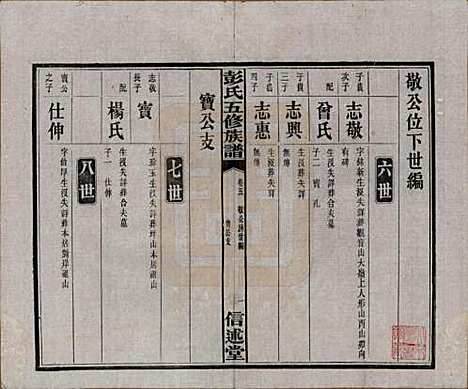 敬公位下世編
六世
子貴次子
志敬
字錦新生沒失詳葬觀音山大嶺上人形山酉山卯向
有碑
配
曾氏
生沒失詳葬合夫墓
子二 寶 孔
子貴三子
志興
生沒葬失詳
無傳
子貴四子
志惠
生沒葬失詳
無傳
彭氏五修族譜
卷三
敬公位下世編
寶公支
一
信述堂
寶公支
七世
志敬長子
寶
字珍玉生沒失詳葬坪山本山
配
楊氏
生沒失詳葬合夫墓
子一 仕伸
八世
寶公之子
仕伸
生沒失詳葬本居對岸嶺山